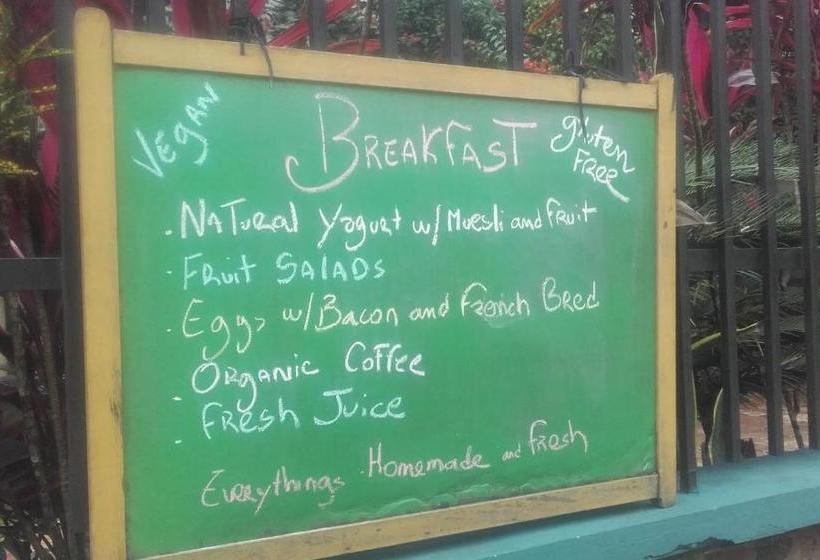 Vegan
Breakfast
gluten
Free
. Natural Yogurt w/ Muesli and fruit
. Fruit Salads
. Eggs w/ Bacon and French Bred
. Organic Coffee
. Fresh Juice
Everythings Homemade and fresh